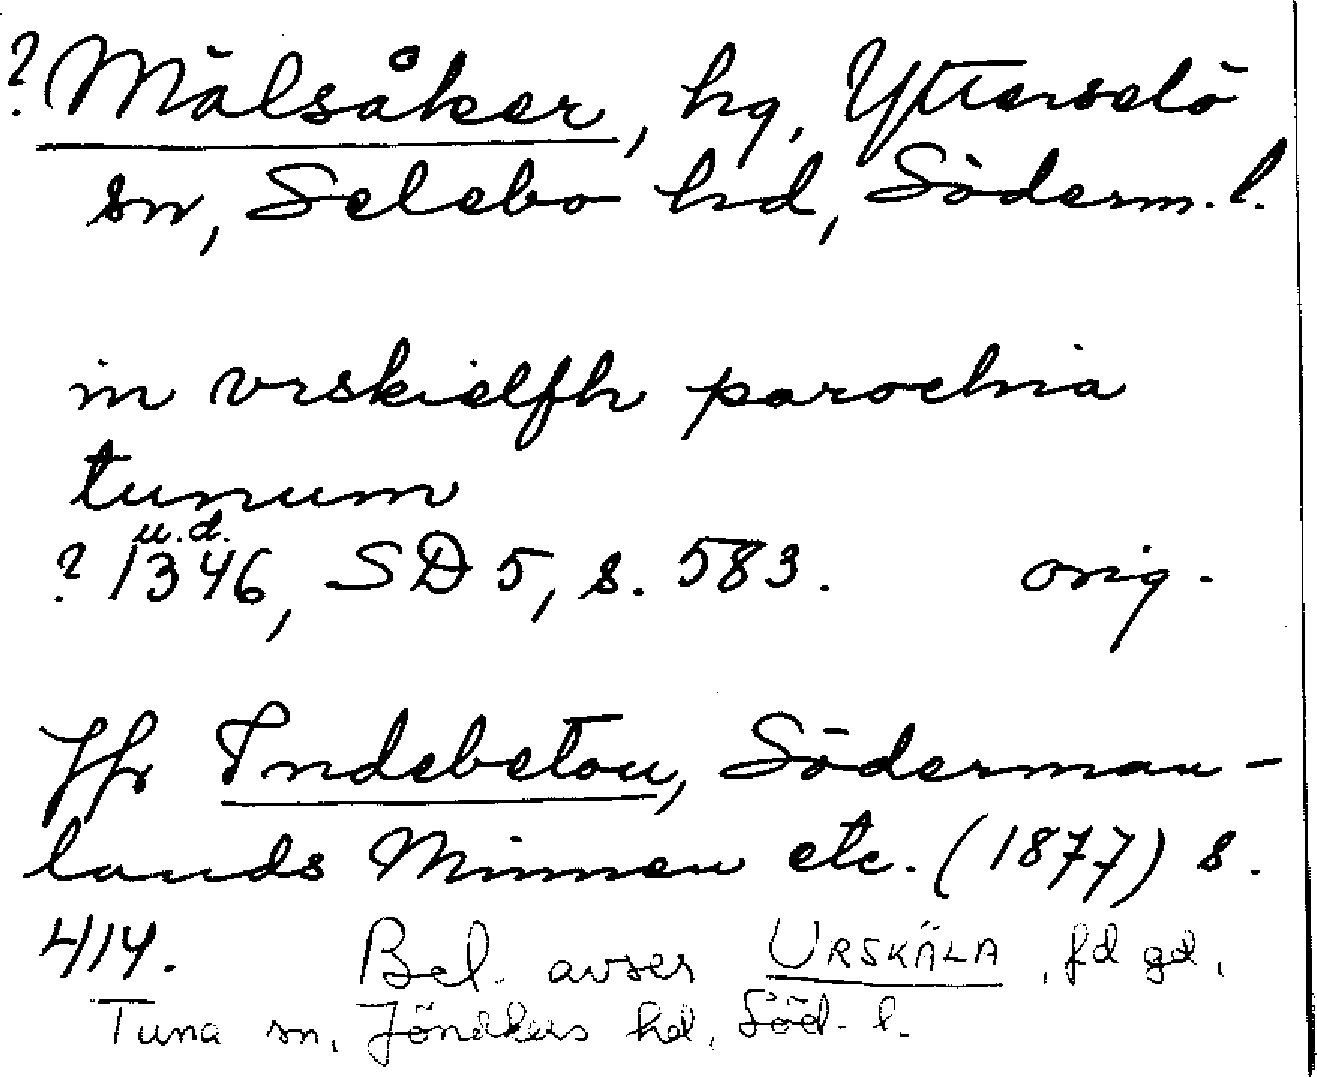 ? Mälsåker, hg, Ytterselö
sn, Selebo hd, Söderm. l.
in vrskielfh parochia
tunum
u.d.
? 1346, SD 5, s. 583. orig.
Jfr Indebetou, Söderman-
lands Minnen etc. (1877) s.
414. Bel. avser URSKÄLA, fd gd,
Tuna sn, Jönåkers hd, Söd. l.